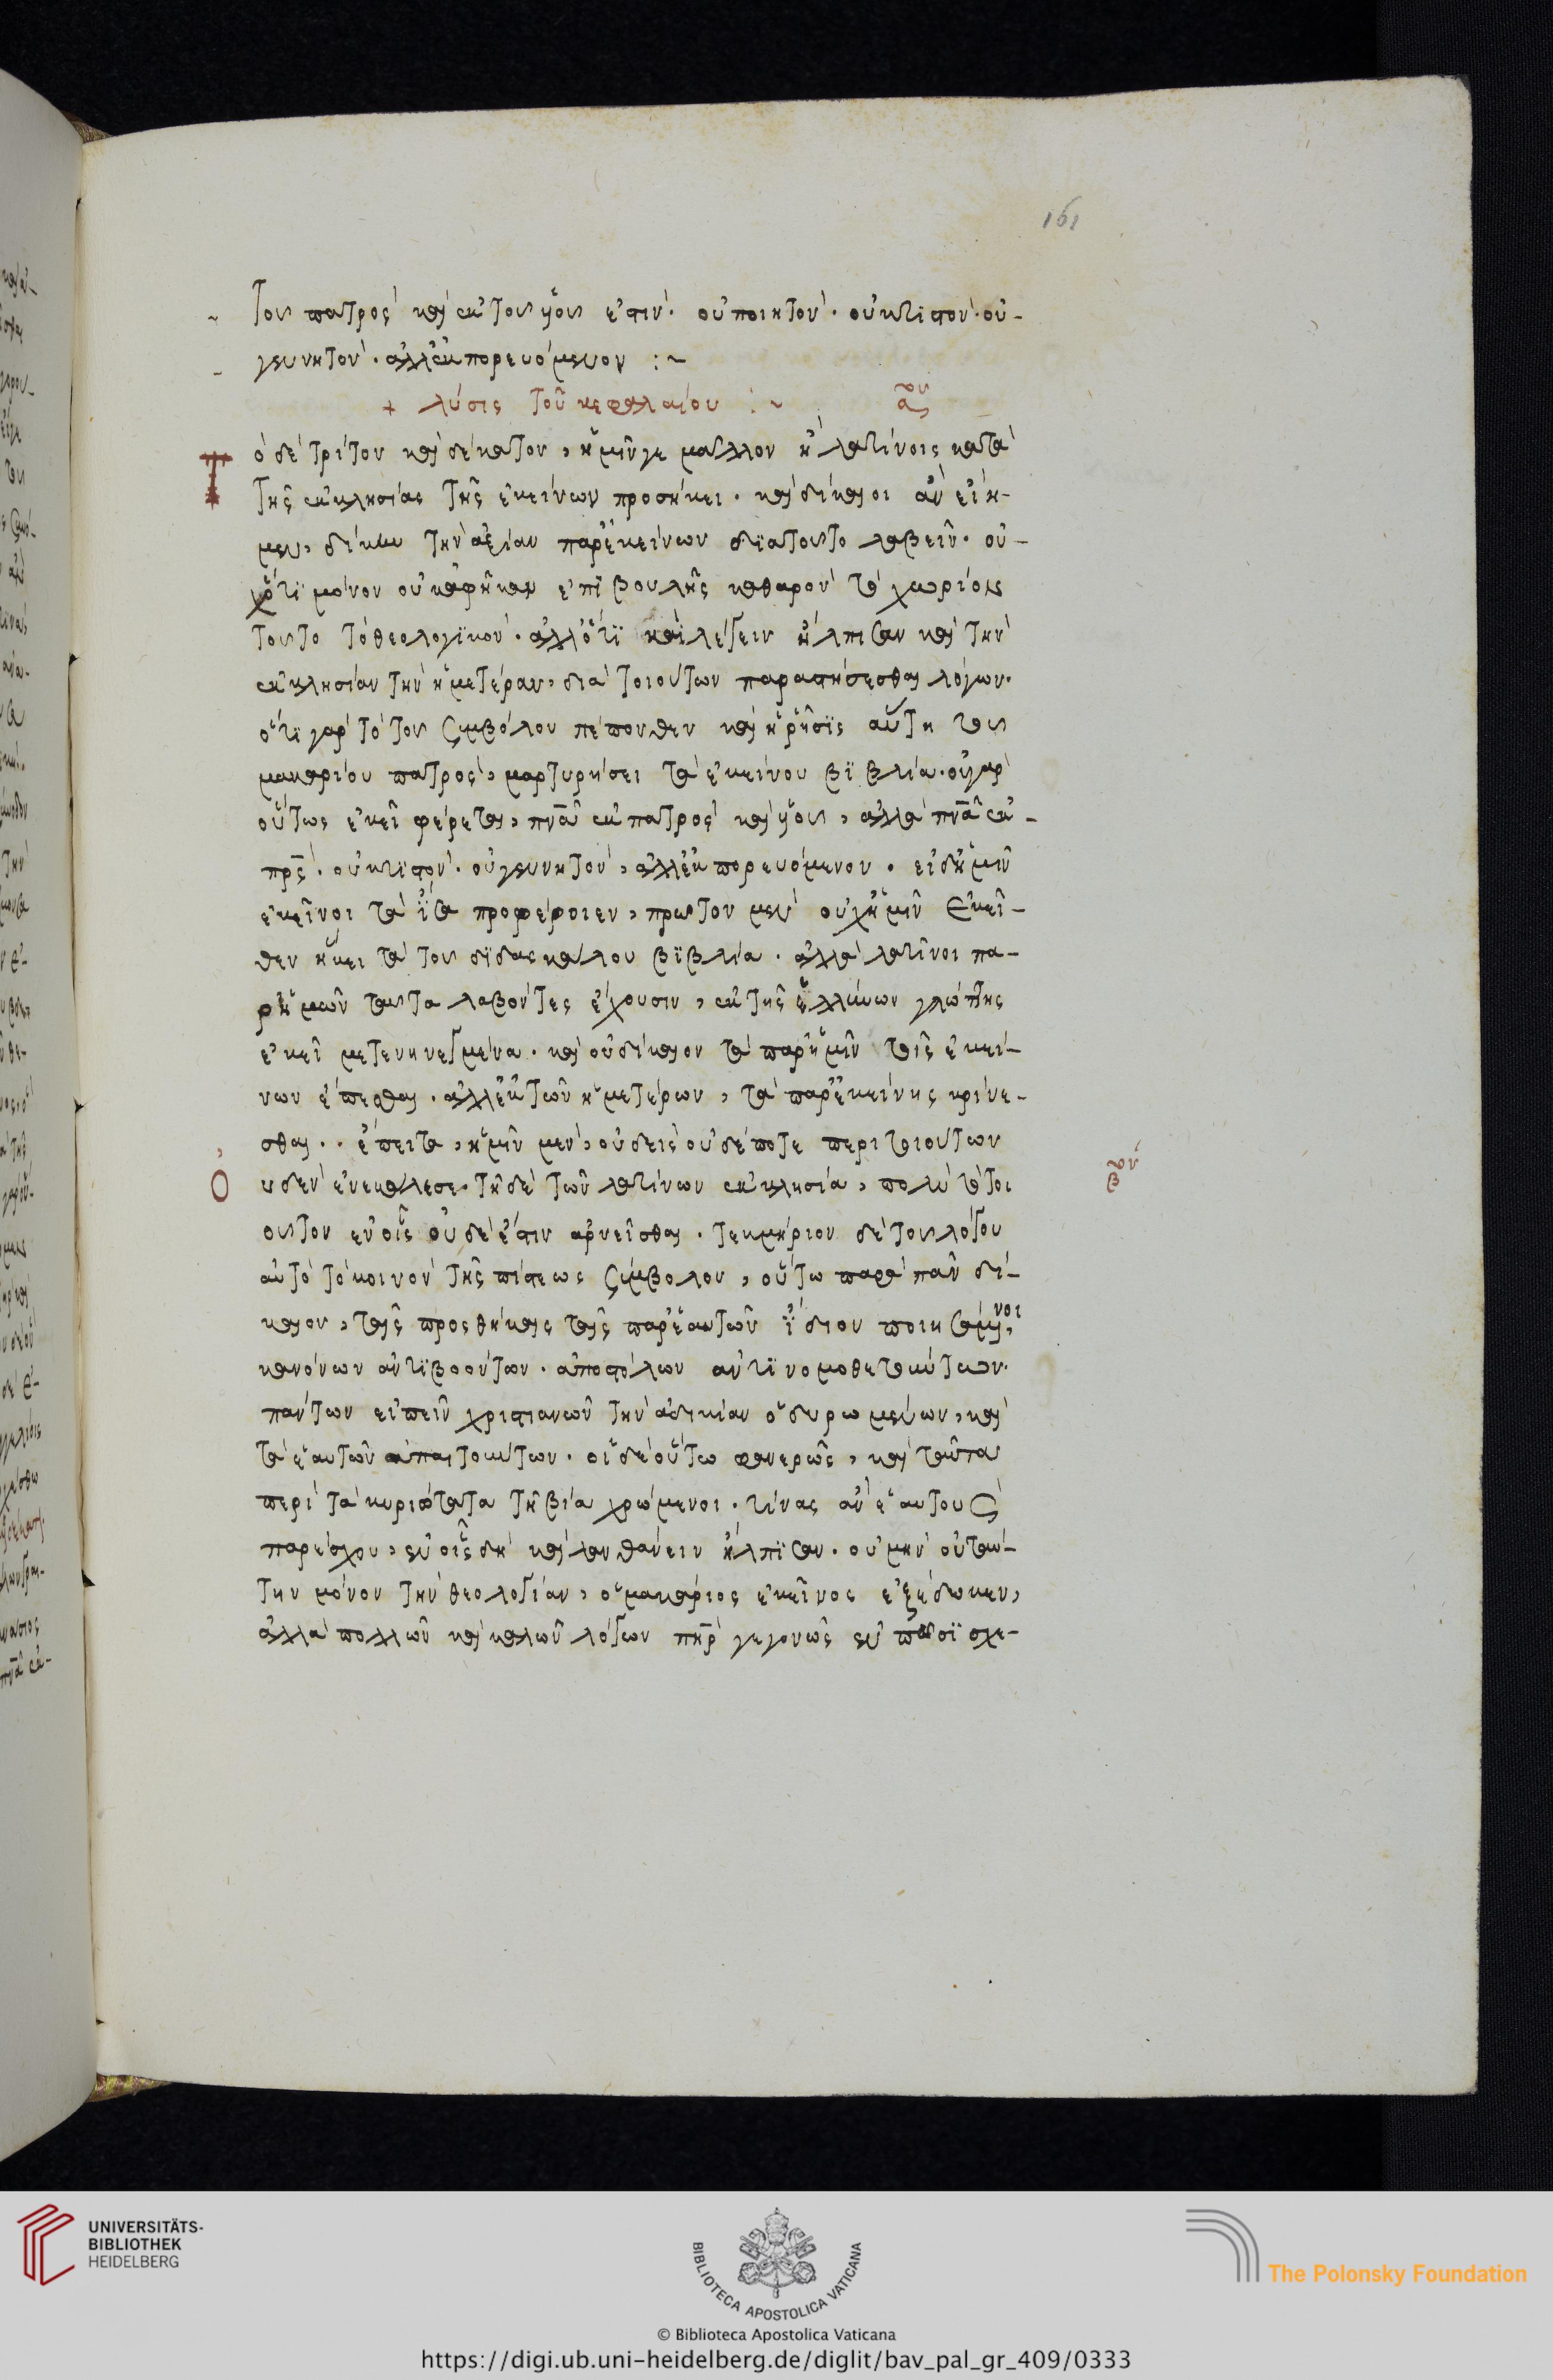 161
τοῦ πατρὸς καὶ ἐκ τοῦ υἱοῦ ἐστὶν· οὐ ποιητὸν· οὐ κτιστὸν· οὐ
γεννητὸν· ἀλλ' ἐκπορευόμενον :~
+ λύσις τοῦ κεφαλαίου :~ αον
Τὸ δὲ τρίτον καὶ δέκατον, ἡμῖν γε μᾶλλον ἢ λατίνοις κατὰ
τῆς ἐκκλησίας τῆς ἐκείνων προσήκει· καὶ δίκαιοι ἂν εἴη-
μεν, δίκην τὴν ἀξίαν παρ' ἐκείνων διὰ τοῦτο λαβεῖν· οὐ-
χ' ὅτι μόνον οὐκ ἀφῆκαν ἐπιβουλῆς καθαρὸν τὸ χωρίον
τοῦτο τὸ θεολογικὸν· ἀλλ' ὅτι καὶ λήσειν ἤλπισαν καὶ τὴν
ἐκκλησίαν τὴν ἡμετέραν, διὰ τοιούτων παραστήσεσθαι λόγων·
ὅτι γὰρ τὸ τοῦ συμβόλου πέπονθεν καὶ ἡ ῥῆσις αὕτη τοῦ
μακαρίου πατρὸς, μαρτυρήσει τὰ ἐκείνου βιβλία· οὐ γὰρ
οὕτως ἐκεῖ φέρεται, πνα ἐκ πατρὸς καὶ υἱοῦ, ἀλλὰ πνα ἐκ
πρς· οὐ κτιστὸν· οὐ γεννητὸν, ἀλλ' ἐκπορευόμενον· εἰ δ' ἡμῖν
ἐκεῖνοι τὰ ἴσα προφέροιεν, πρῶτον μὲν οὐχ' ἡμῖν ἐκεῖ-
θεν ἥκει τὰ τοῦ διδασκάλου βιβλία· ἀλλὰ λατῖνοι πα-
ρ' ἡμῶν ταῦτα λαβόντες ἔχουσιν, ἐκ τῆς ἑλλήνων γλώττης
ἐκεῖ μετενηνεγμένα· καὶ οὐ δίκαιον τὰ παρ' ἡμῖν τοῖς ἐκεί-
νων ἕπεσθαι· ἀλλ' ἐκ τῶν ἡμετέρων, τὰ παρ' ἐκείνης κρίνε-
σθαι·· ἔπειτα, ἡμῖν μὲν, οὐδεὶς οὐδέποτε περὶ τοιούτων
Οὐδὲν ἐνεκάλεσε· τῇ δὲ τῶν λατίνων ἐκκλησία, πολὺ τὸ τοι βον
οῦτον ἐν οἷς οὐδὲ ἔστιν ἀρνεῖσθαι· τεκμήριον δὲ τοῦ λόγου
αὐτὸ τὸ κοινὸν τῆς πίστεως σύμβολον, οὕτω παρὰ πᾶν δί-
καιον, ταῖς προσθήκαις ταῖς παρ' ἑαυτῶν ἴδιον ποιησάμενοι,
κανόνων ἀντιβοόντων· ἀποστόλων ἀντινομοθετούντων·
πάντων εἰπεῖν χριστιανῶν τὴν ἀδικίαν ὀδυρωμένων, καὶ
τὰ ἑαυτῶν ἀπαιτούντων· οἱ δὲ οὕτω φανερῶς, καὶ ταῦτα
περὶ τὰ κυριώτατα τῇ βία χρώμενοι· τίνας ἂν ἑαυτοὺς
παρέσχον, ἐν οἷς δὴ καὶ λανθάνειν ἤλπισαν· οὐ μὴν οὐ ταύ-
την μόνον τὴν θεολογίαν, ὁ μακάριος ἐκεῖνος ἐξέδωκεν,
ἀλλὰ πολλῶν καὶ καλῶν λόγων πηρ γεγονὼς ἐν πᾶσι σχε-
UNIVERSITÄTS-
BIBLIOTHEK
HEIDELBERG
BIBLIOTECA APOSTOLICA VATICANA
The Polonsky Foundation
© Biblioteca Apostolica Vaticana
https://digi.ub.uni-heidelberg.de/diglit/bav_pal_gr_409/0333